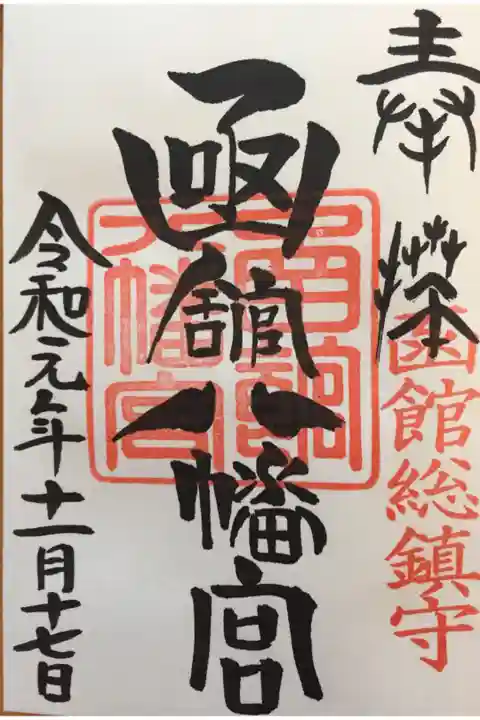 奉拝
函館総鎮守
函館八幡宮
函館八幡宮
令和元年十一月十七日